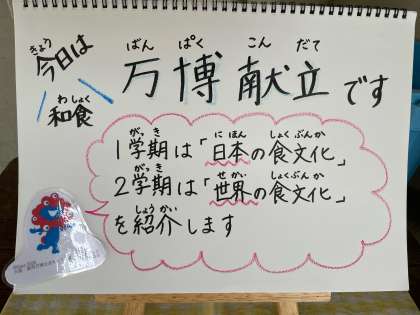 今日は
和食
万博献立です
1学期は「日本の食文化」
2学期は「世界の食文化」
を紹介します
きょう
わしょく
ばんぱくこんだて
がっき
にほん
しょくぶんか
がっき
せかい
しょくぶんか
しょうかい